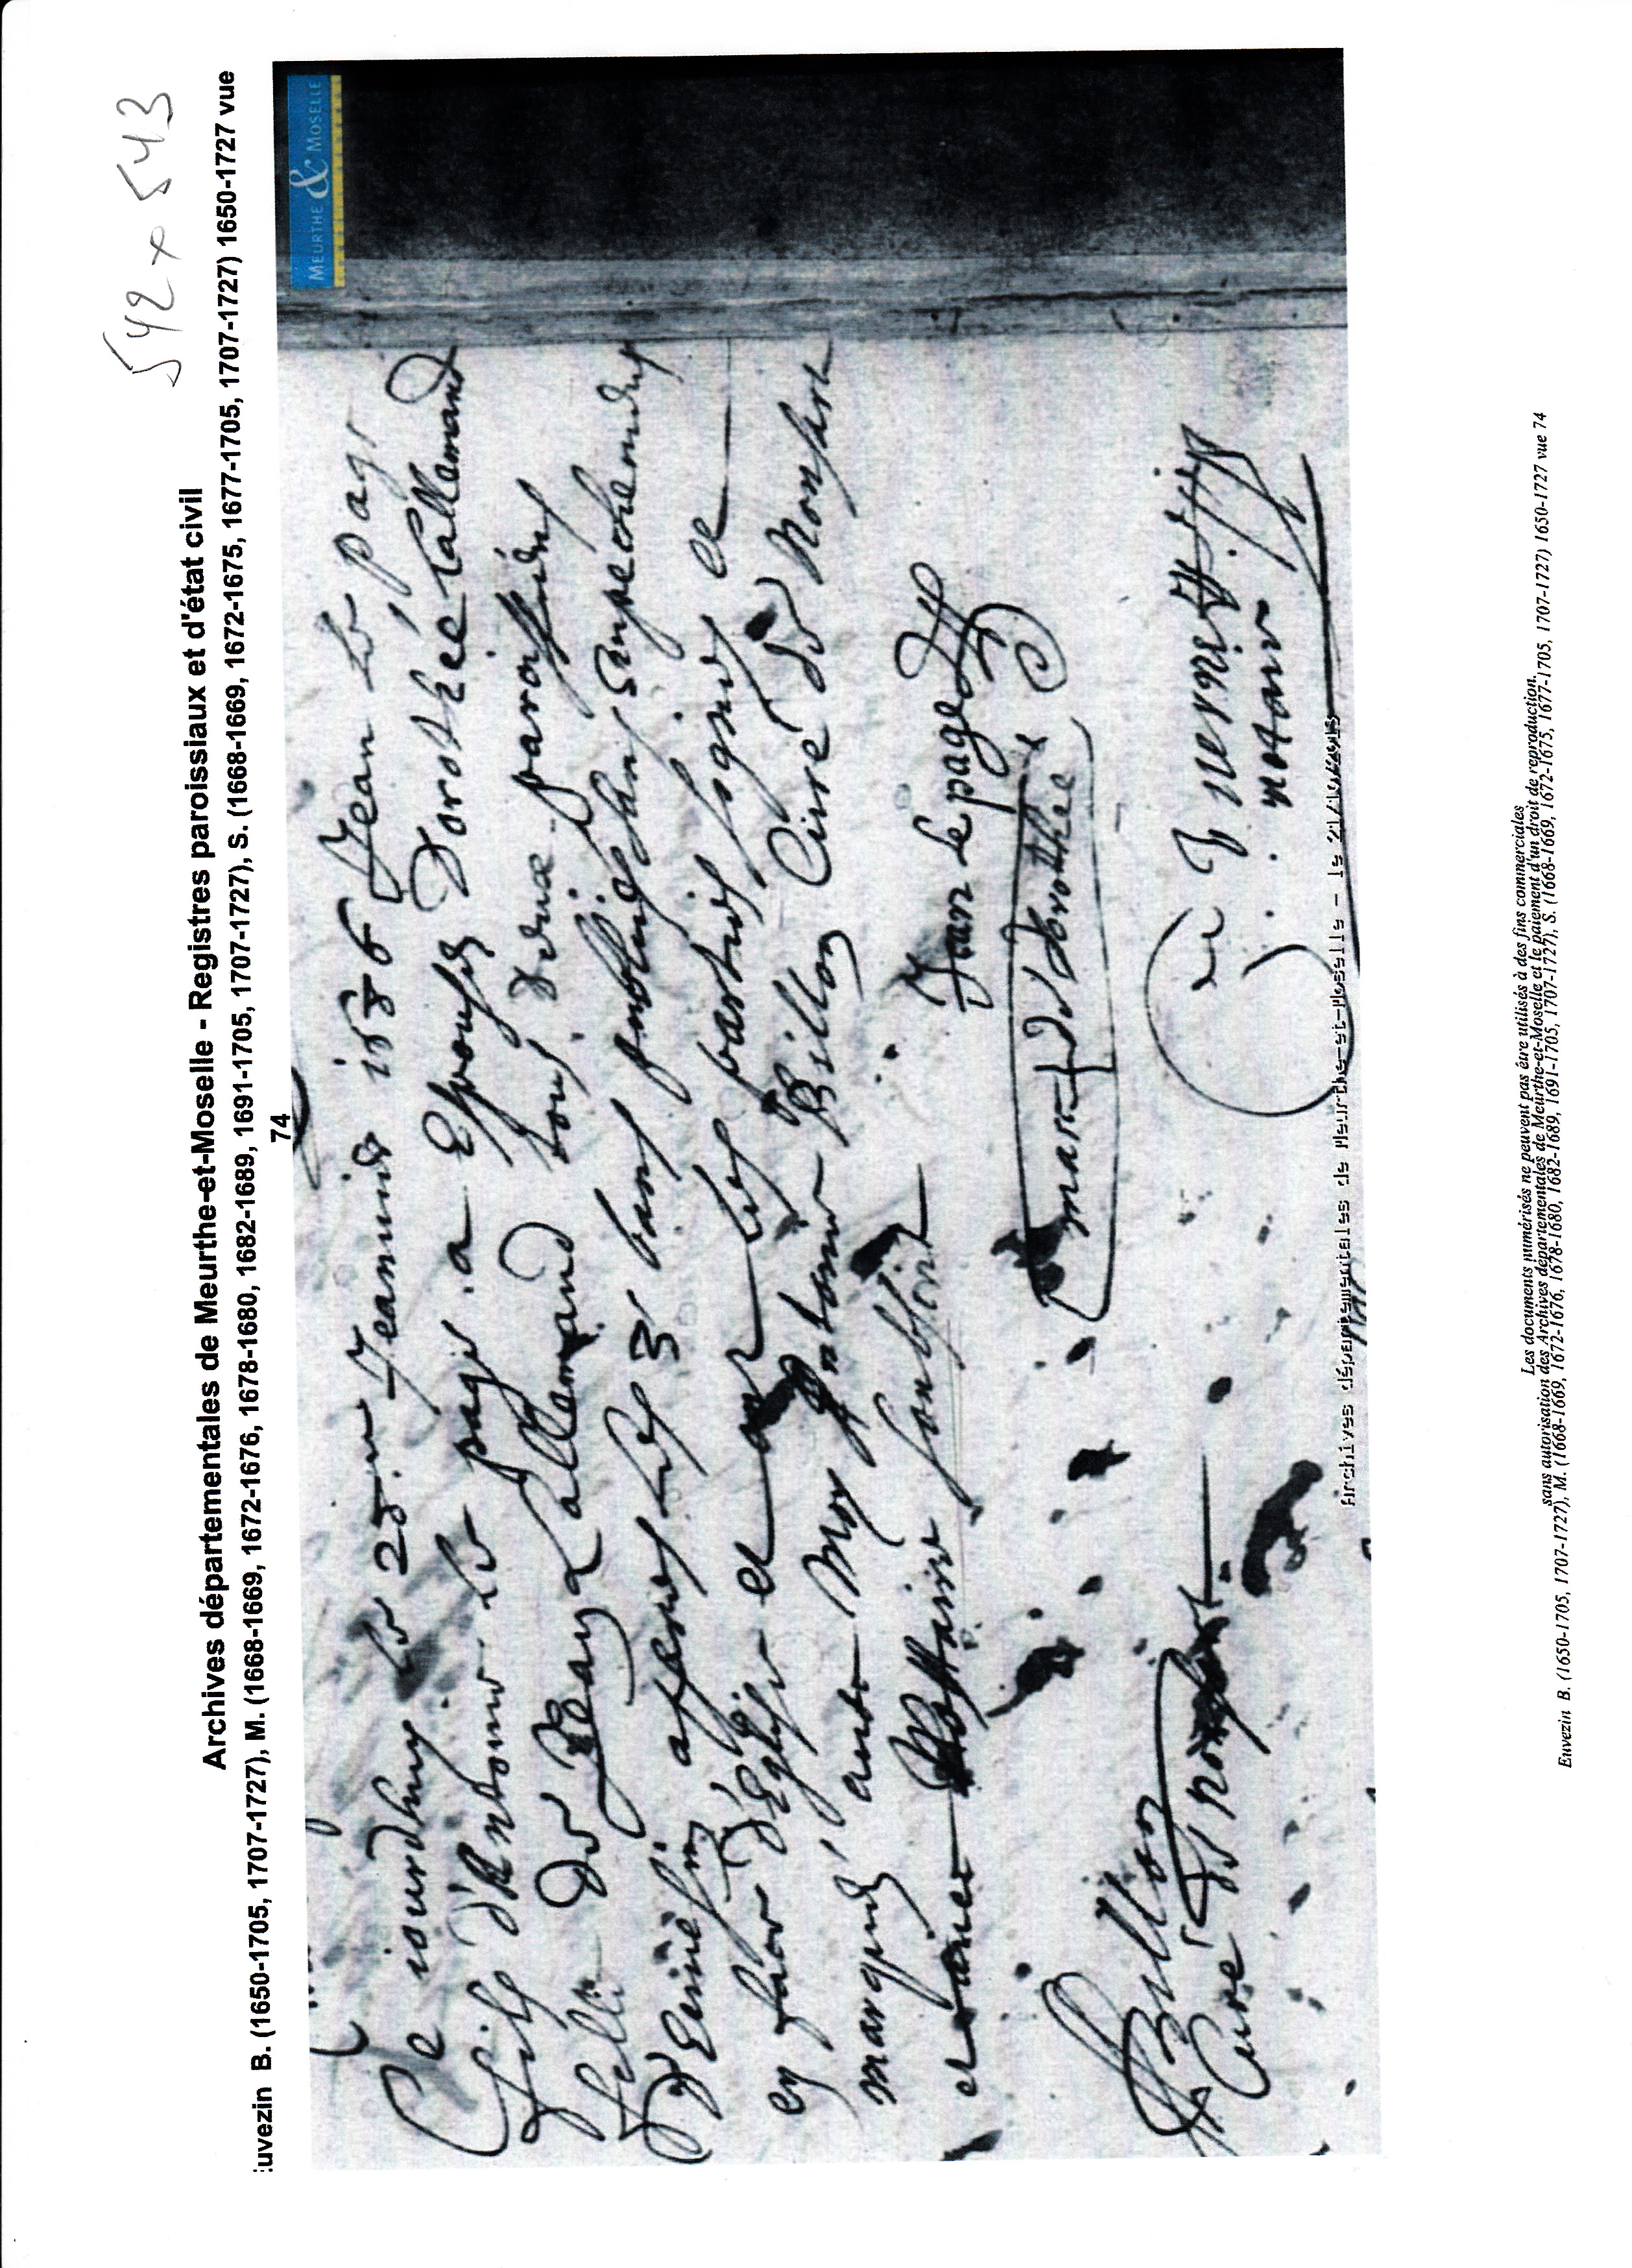 542 x 543
Archives départementales de Meurthe-et-Moselle - Registres paroissiaux et d'état civil
uvezin B. (1650-1705, 1707-1727), M. (1668-1669, 1672-1676, 1678-1680, 1682-1689, 1691-1705, 1707-1727), S. (1668-1669, 1672-1675, 1677-1705, 1707-1727) 1650-1727 vue
74
MEURTHE & MOSELLE
Ce iourdhuy le 25me Jeanvier 1686 Jean le page
fils d'Antoine le page a Epousé Dorothée Lallemand
fille de Jean Lallemand tous deux paroissiens
d'Euvesin apres les 3 bans publiés sans empechement
en face d'Eglise et ont les parties signé et
marqué avec Moy Antoine Billon Curé de Nonsart
et Notaire soubsigné
Jean le page
marq + de dorothee
A Billon
Curé de Nonsart
notaire
Archives départementales de Meurthe-et-Moselle - le
Les documents numérisés ne peuvent pas être utilisés à des fins commerciales
sans autorisation des Archives départementales de Meurthe-et-Moselle et le paiement d'un droit de reproduction.
Euvezin B. (1650-1705, 1707-1727), M. (1668-1669, 1672-1676, 1678-1680, 1682-1689, 1691-1705, 1707-1727), S. (1668-1669, 1672-1675, 1677-1705, 1707-1727) 1650-1727 vue 74